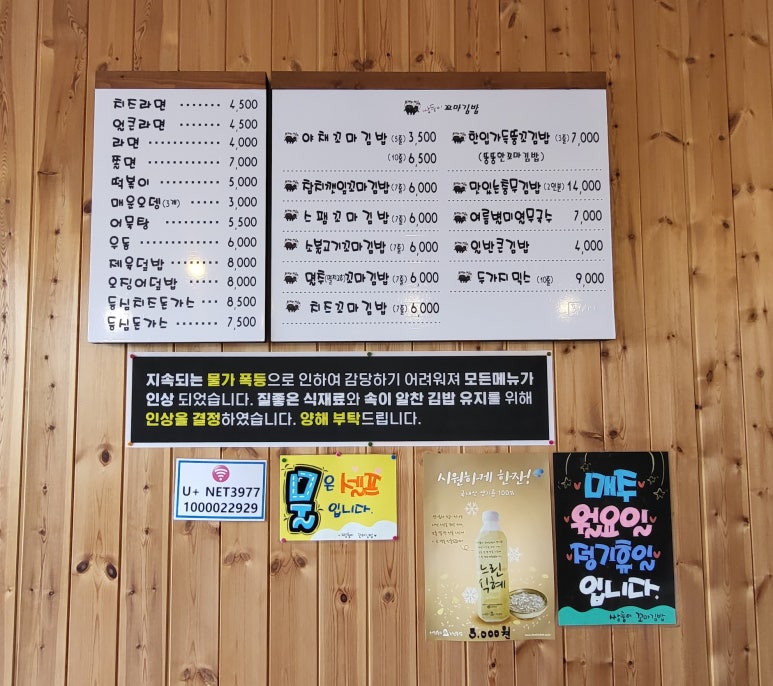 치즈라면 ······· 4,500
원큰라면 ······· 4,500
라면 ········ 4,000
쫄면 ········ 7,000
떡볶이 ······ 5,000
매운오뎅(3개) ··· 3,000
어묵탕 ······ 5,500
우동 ········ 6,000
제육덮밥 ····· 8,000
오징어덮밥 ···· 8,000
등심치즈돈가스 ··· 8,500
등심돈가스 ···· 7,500
꼬마김밥
야채꼬마김밥 (5줄) 3,500
(10줄) 6,500
참치깻잎꼬마김밥 (7줄) 6,000
스팸꼬마김밥 (7줄) 6,000
소불고기꼬마김밥 (7줄) 6,000
땡초(멸치고추)꼬마김밥 (7줄) 6,000
치즈꼬마김밥 (7줄) 6,000
한입가득뚱꼬김밥 (3줄) 7,000
(뚱뚱한꼬마김밥)
맛있는충무김밥 (2인분) 14,000
여름별미열무국수 7,000
일반큰김밥 4,000
두가지믹스 (10줄) 9,000
지속되는 물가 폭등으로 인하여 감당하기 어려워져 모든메뉴가
인상 되었습니다. 질좋은 식재료와 속이 알찬 김밥 유지를 위해
인상을 결정하였습니다. 양해 부탁드립니다.
U+ NET3977
1000022929
물은 셀프
입니다.
시원하게 한잔!
100%
느린
식혜
3,000원
매주
월요일
정기휴일
입니다.
쌍둥이 꼬마김밥